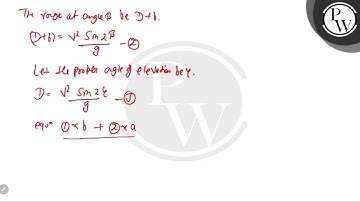 The range at angle β be D+b.
(D+b) = v² Sin2β / g — ②
Let the proper angle of elevation be γ.
D = v² Sin2γ / g — ③
equⁿ ① × b + ② × a
PW